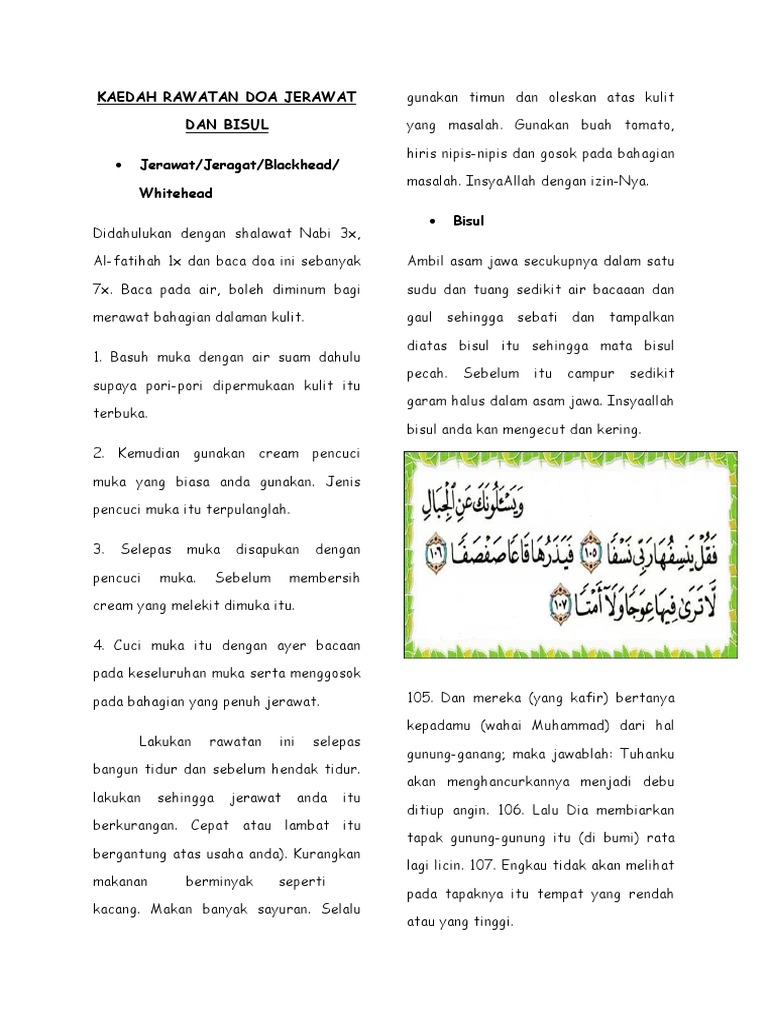 KAEDAH RAWATAN DOA JERAWAT
DAN BISUL
• Jerawat/Jeragat/Blackhead/
Whitehead
Didahulukan dengan shalawat Nabi 3x,
Al-fatihah 1x dan baca doa ini sebanyak
7x. Baca pada air, boleh diminum bagi
merawat bahagian dalaman kulit.
1. Basuh muka dengan air suam dahulu
supaya pori-pori dipermukaan kulit itu
terbuka.
2. Kemudian gunakan cream pencuci
muka yang biasa anda gunakan. Jenis
pencuci muka itu terpulanglah.
3. Selepas muka disapukan dengan
pencuci muka. Sebelum membersih
cream yang melekit dimuka itu.
4. Cuci muka itu dengan ayer bacaan
pada keseluruhan muka serta menggosok
pada bahagian yang penuh jerawat.
Lakukan rawatan ini selepas
bangun tidur dan sebelum hendak tidur.
lakukan sehingga jerawat anda itu
berkurangan. Cepat atau lambat itu
bergantung atas usaha anda). Kurangkan
makanan berminyak seperti
kacang. Makan banyak sayuran. Selalu
gunakan timun dan oleskan atas kulit
yang masalah. Gunakan buah tomato,
hiris nipis-nipis dan gosok pada bahagian
masalah. InsyaAllah dengan izin-Nya.
• Bisul
Ambil asam jawa secukupnya dalam satu
sudu dan tuang sedikit air bacaaan dan
gaul sehingga sebati dan tampalkan
diatas bisul itu sehingga mata bisul
pecah. Sebelum itu campur sedikit
garam halus dalam asam jawa. Insyaallah
bisul anda kan mengecut dan kering.
وَيَسْـَٔلُونَكَ عَنِ ٱلْجِبَالِ
فَقُلْ يَنسِفُهَا رَبِّي نَسْفًا ١٠٥ فَيَذَرُهَا قَاعًا صَفْصَفًا ١٠٦
لَّا تَرَىٰ فِيهَا عِوَجًا وَلَآ أَمْتًا ١٠٧
105. Dan mereka (yang kafir) bertanya
kepadamu (wahai Muhammad) dari hal
gunung-ganang; maka jawablah: Tuhanku
akan menghancurkannya menjadi debu
ditiup angin. 106. Lalu Dia membiarkan
tapak gunung-gunung itu (di bumi) rata
lagi licin. 107. Engkau tidak akan melihat
pada tapaknya itu tempat yang rendah
atau yang tinggi.